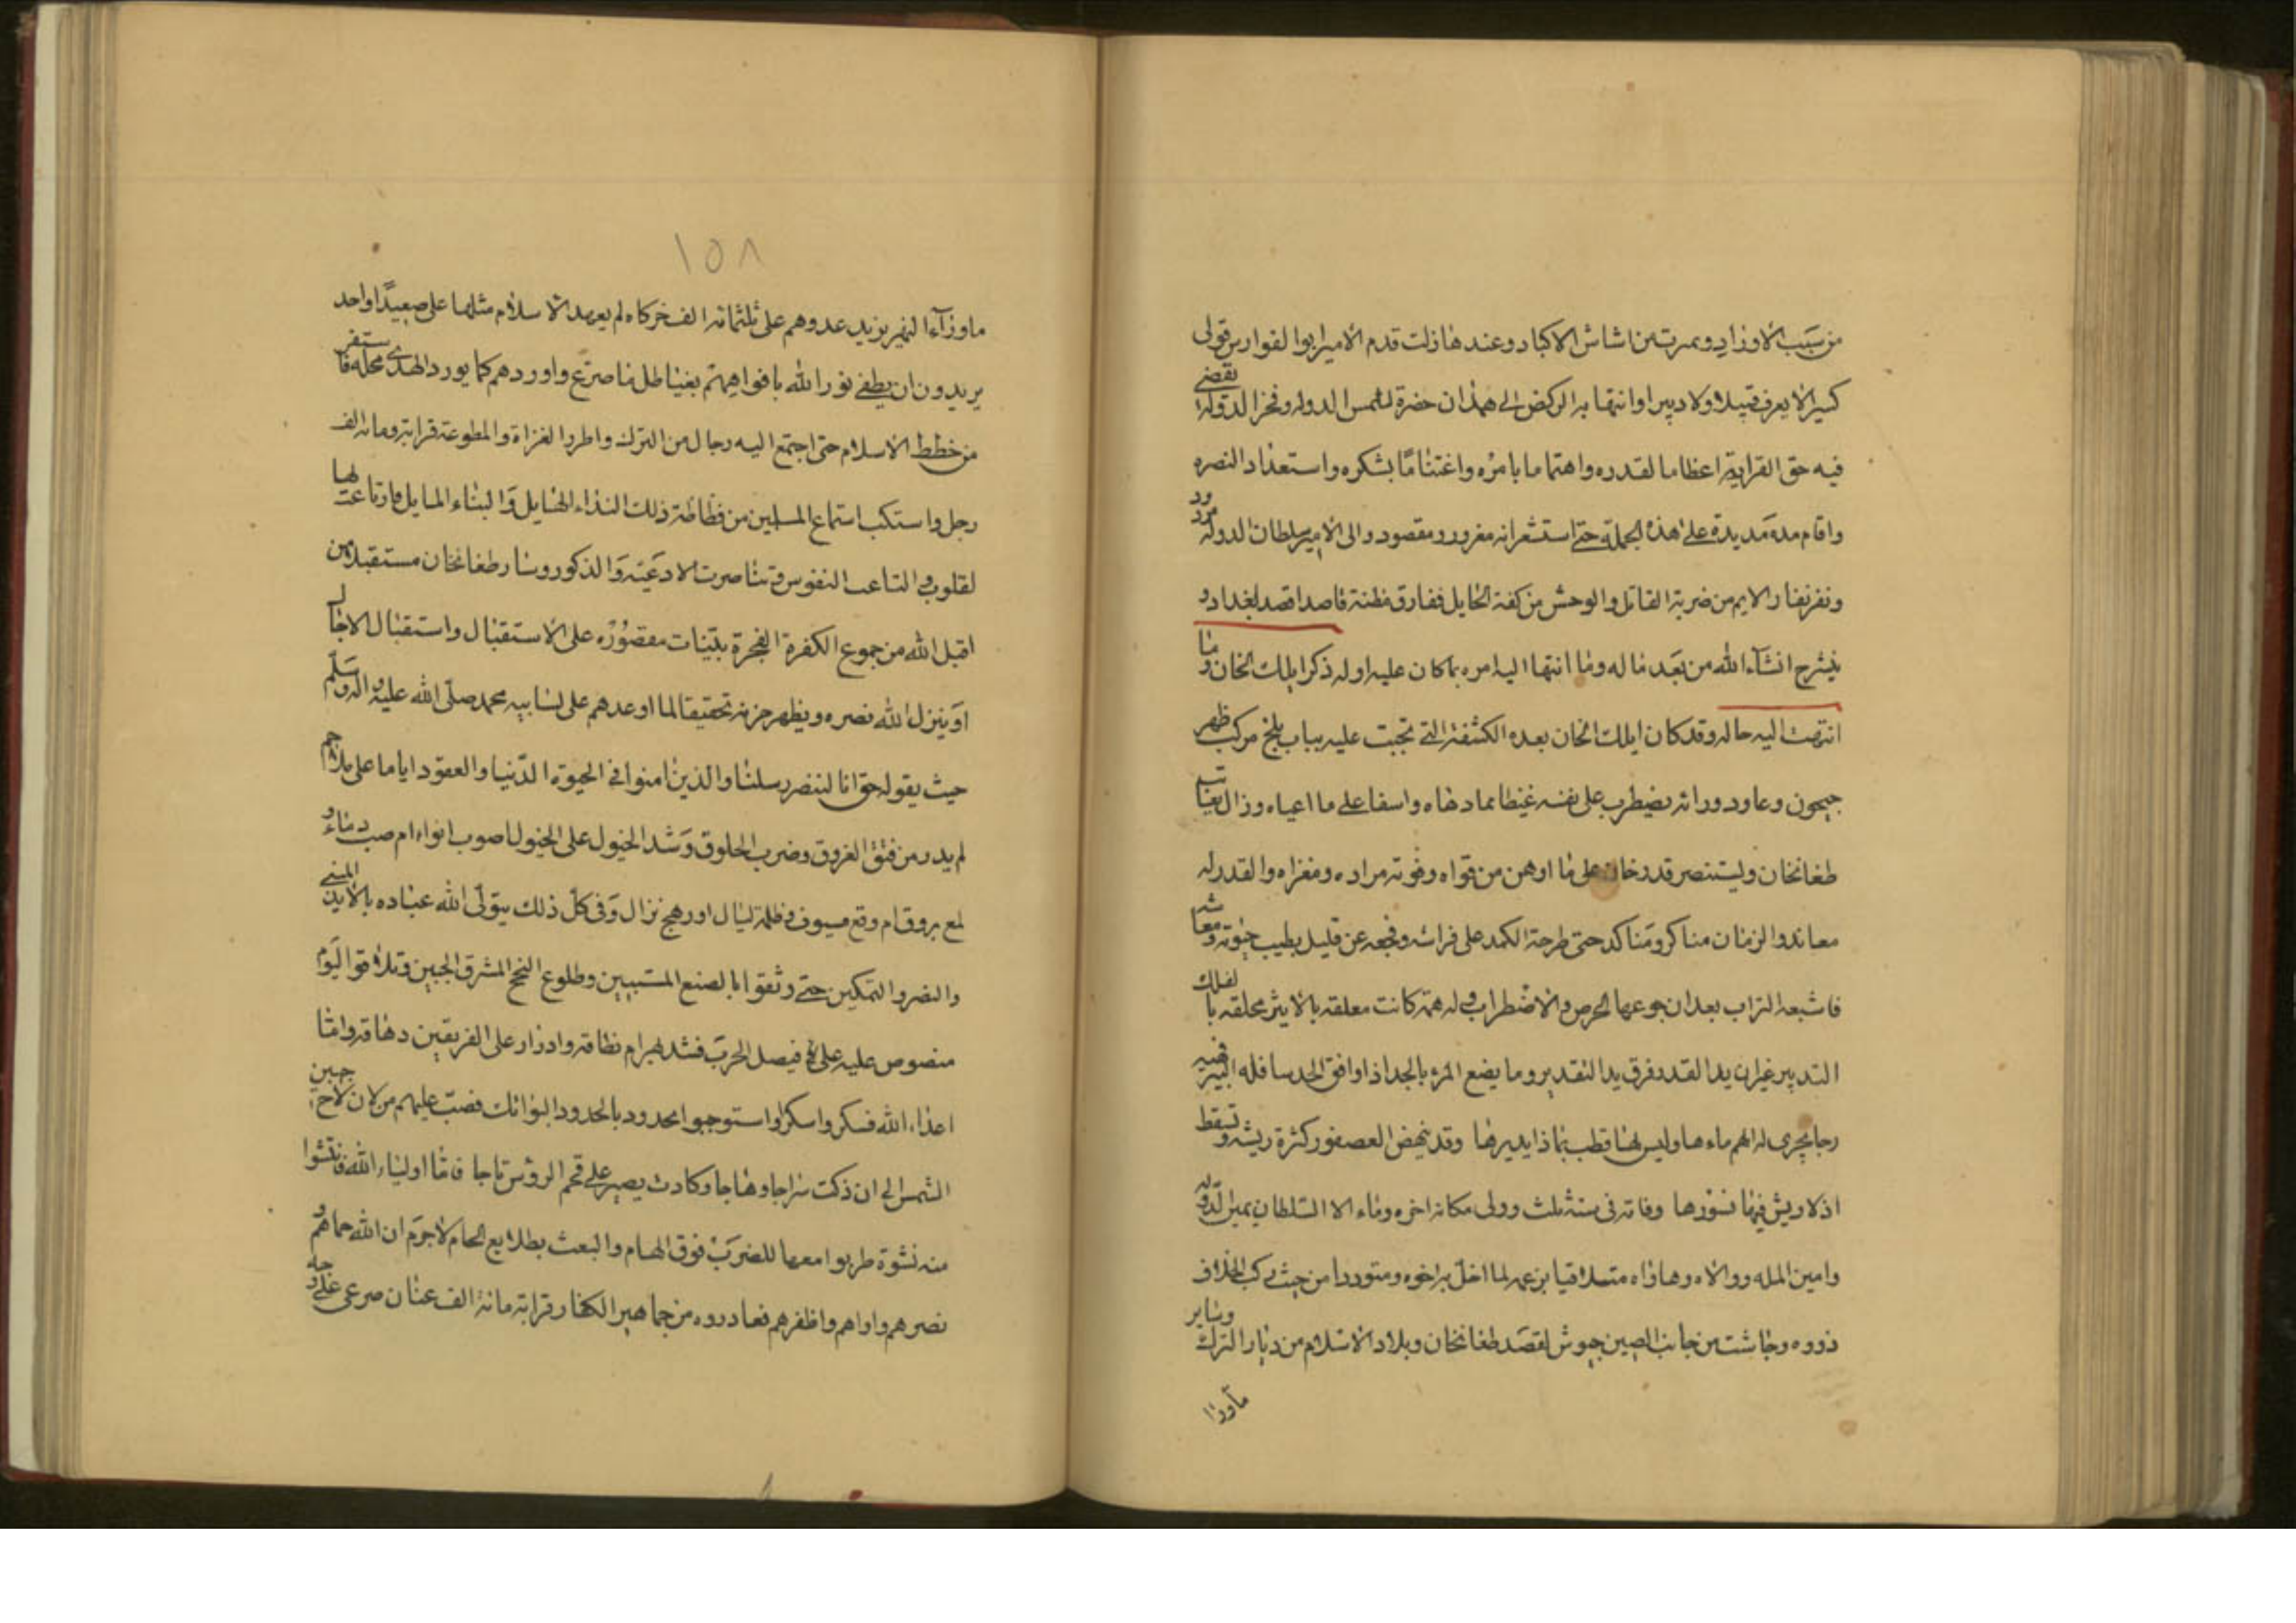 من سبب الاوزاد وممرت من اشاش الاكباد وعندها زلت قدم الامير ابو الفوارس فتولى
كسيرا لا يعرف قبيلا ولا دبيرا وانتها به الركض الى همذان حضرة لشمس الدوله وفخر الدوله يقضى
فيه حق القرابة اعظاما لقدره واهتماما بامره واغتناما بشكره واستعذاد النصره
واقام مدة مديدة على هذه الجملة حتى استشعر انه مغرور ومقصود والى الامير سلطان الدوله مردود
ونفر نفار الايم من ضربة القاتل والوحش من كفة الحابل ففارق مظنته قاصدا قصد بغداد و
يشرح انشآء الله من بعد ماله وما انتها اليه امره بما كان عليه اوله ذكر ايلك الخان وما
انتهت اليه حاله وقد كان ايلك الخان بعد الكشفة التى تجبت عليه بباب بلخ مركب ظهر
جيحون وعاود ورائه يضطرب على نفسه غيظا مما دهاه واسفا على ما اعياه وزال يعاتب
طغانخان وليستنصر قدرخان على ما اوهن من قواه وفوته مراده ومغزاه والقدر له
معاند والزمان مناكر ومناكد حتى طرحته الكمد على فراشه وفجعه عن قليل بطيب حيوته ومعاشه
فاشبعه التراب بعد ان جوعها الحرص والاضطراب وله همة كانت معلقه بالاثير محلقه بالفلك
التدبير غير ان يد القدر فرق يد التقدير وما يضع المرء بالجد اذا وافق الحد سافله البير فيه
رحا يجرى له الهم ماءها وليس لها قطب بما ذا يديرها وقد ينهض العصفور كثرة ريشه وتسقط
اذ لا ريش فيها نسورها وفاته فى سنة ثلث وولى مكانه اخوه وماء الا السلطان يمين الدوله
وامين المله ووالاه وهاداه متلافيا بزعمه لما اخل به اخوه ومتوددا من حيث ركب الخلاف
ذووه وجاشت من جانب الصين جيوش لقصد طغانخان وبلاد الاسلام من ديار الترك وساير
ماورا
١٥٨
ماورآء النهر يزيد عدوهم على ثلثمائه الف خركاه لم يعهد الاسلام مثلها على صعيد واحد
يريدون ان يطفئ نور الله بافواههم بغيا طل ما صرع واوردهم كما يورد الهدى محله فاستنفر
من خطط الاسلام حتى اجتمع اليه رجال من الترك واطر والغزاة والمطوعة قرابة ومائه الف
رجل واستكب استماع المسلمين من فظاظة ذلك النداء الهايل والبناء المايل فارتاعت لها
لقلوب والتاعت النفوس وتناصرت الادعيه والذكور وسار طغانخان مستقبلا من
اقبل الله من جموع الكفرة الفجرة بنيات مقصوره على الاستقبال واستقبال الاجال
او ينزل الله نصره ويظهر حزبه تحقيقا لما اوعدهم على لسا نبيه محمد صلى الله عليه واله وسلم
حيث يقوله حق انا لننصر رسلنا والذين امنوا فى الحيوة الدنيا والعقود اياما على ملاحم
لم يدر من فتق العروق وضرب الحلوق وشد الخيول على الخيول اصوب انواء ام صب دماء و
لمع بروق ام وقع سيوف وظلمة ليال او رهج نزال وفى كل ذلك يتولى الله عباده بالايد المبنى
والنصر والتمكين حتى وثقوا بالصنع المستبين وطلوع النجح المشرق الجبين وتلاقوا اليوم
منصوص عليه على فيصل الحرب فشد ابرام نطاقه وادار على الفريقين دهاقه واما
اعداء الله فسكروا سكرا واستوجبوا الحدود بالحدود البواتك فصبت عليهم من لان لاح جبين
الشمس الى ان ذكت سراجا وهاجا وكادت يصير على قمم الرؤس تاجا فاما اولياء الله فانتشوا
منه نشوة طربوا معها للضرب فوق الهام والبعث بطلايع الحمام لا جرم ان الله حماهم و
نصرهم واواهم واظفرهم فغادروه من جماهير الكفار قرابة مائة الف عنان صرعى على وجه